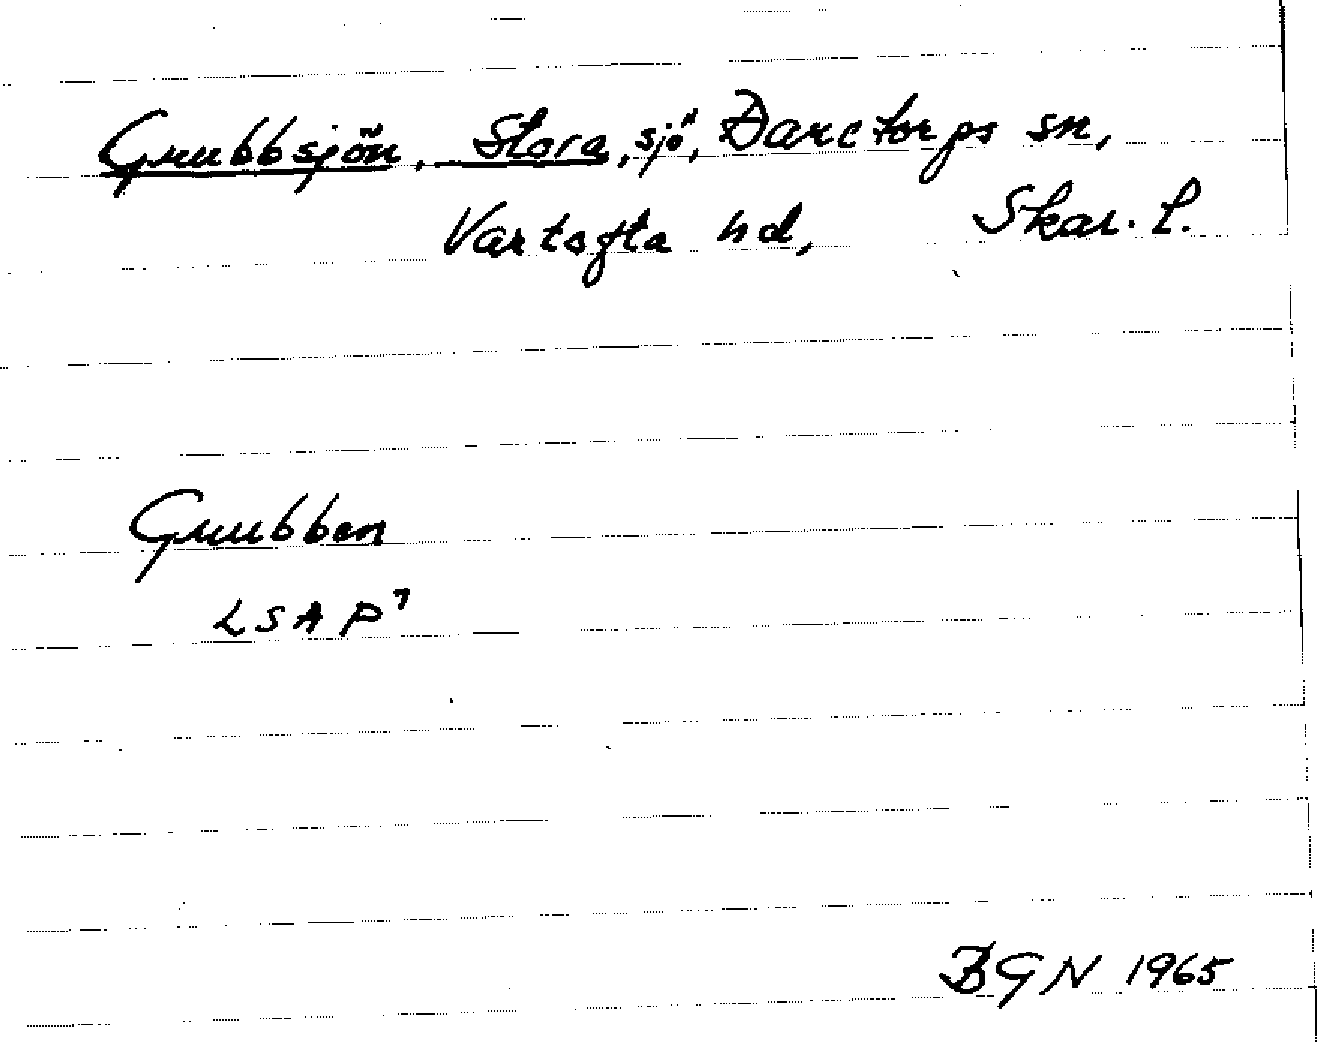 Grubbsjön, Stora, sjö, Daretorps sn,
Vartofta hd, Skar. l.
Grubben
LSA P7
BGN 1965